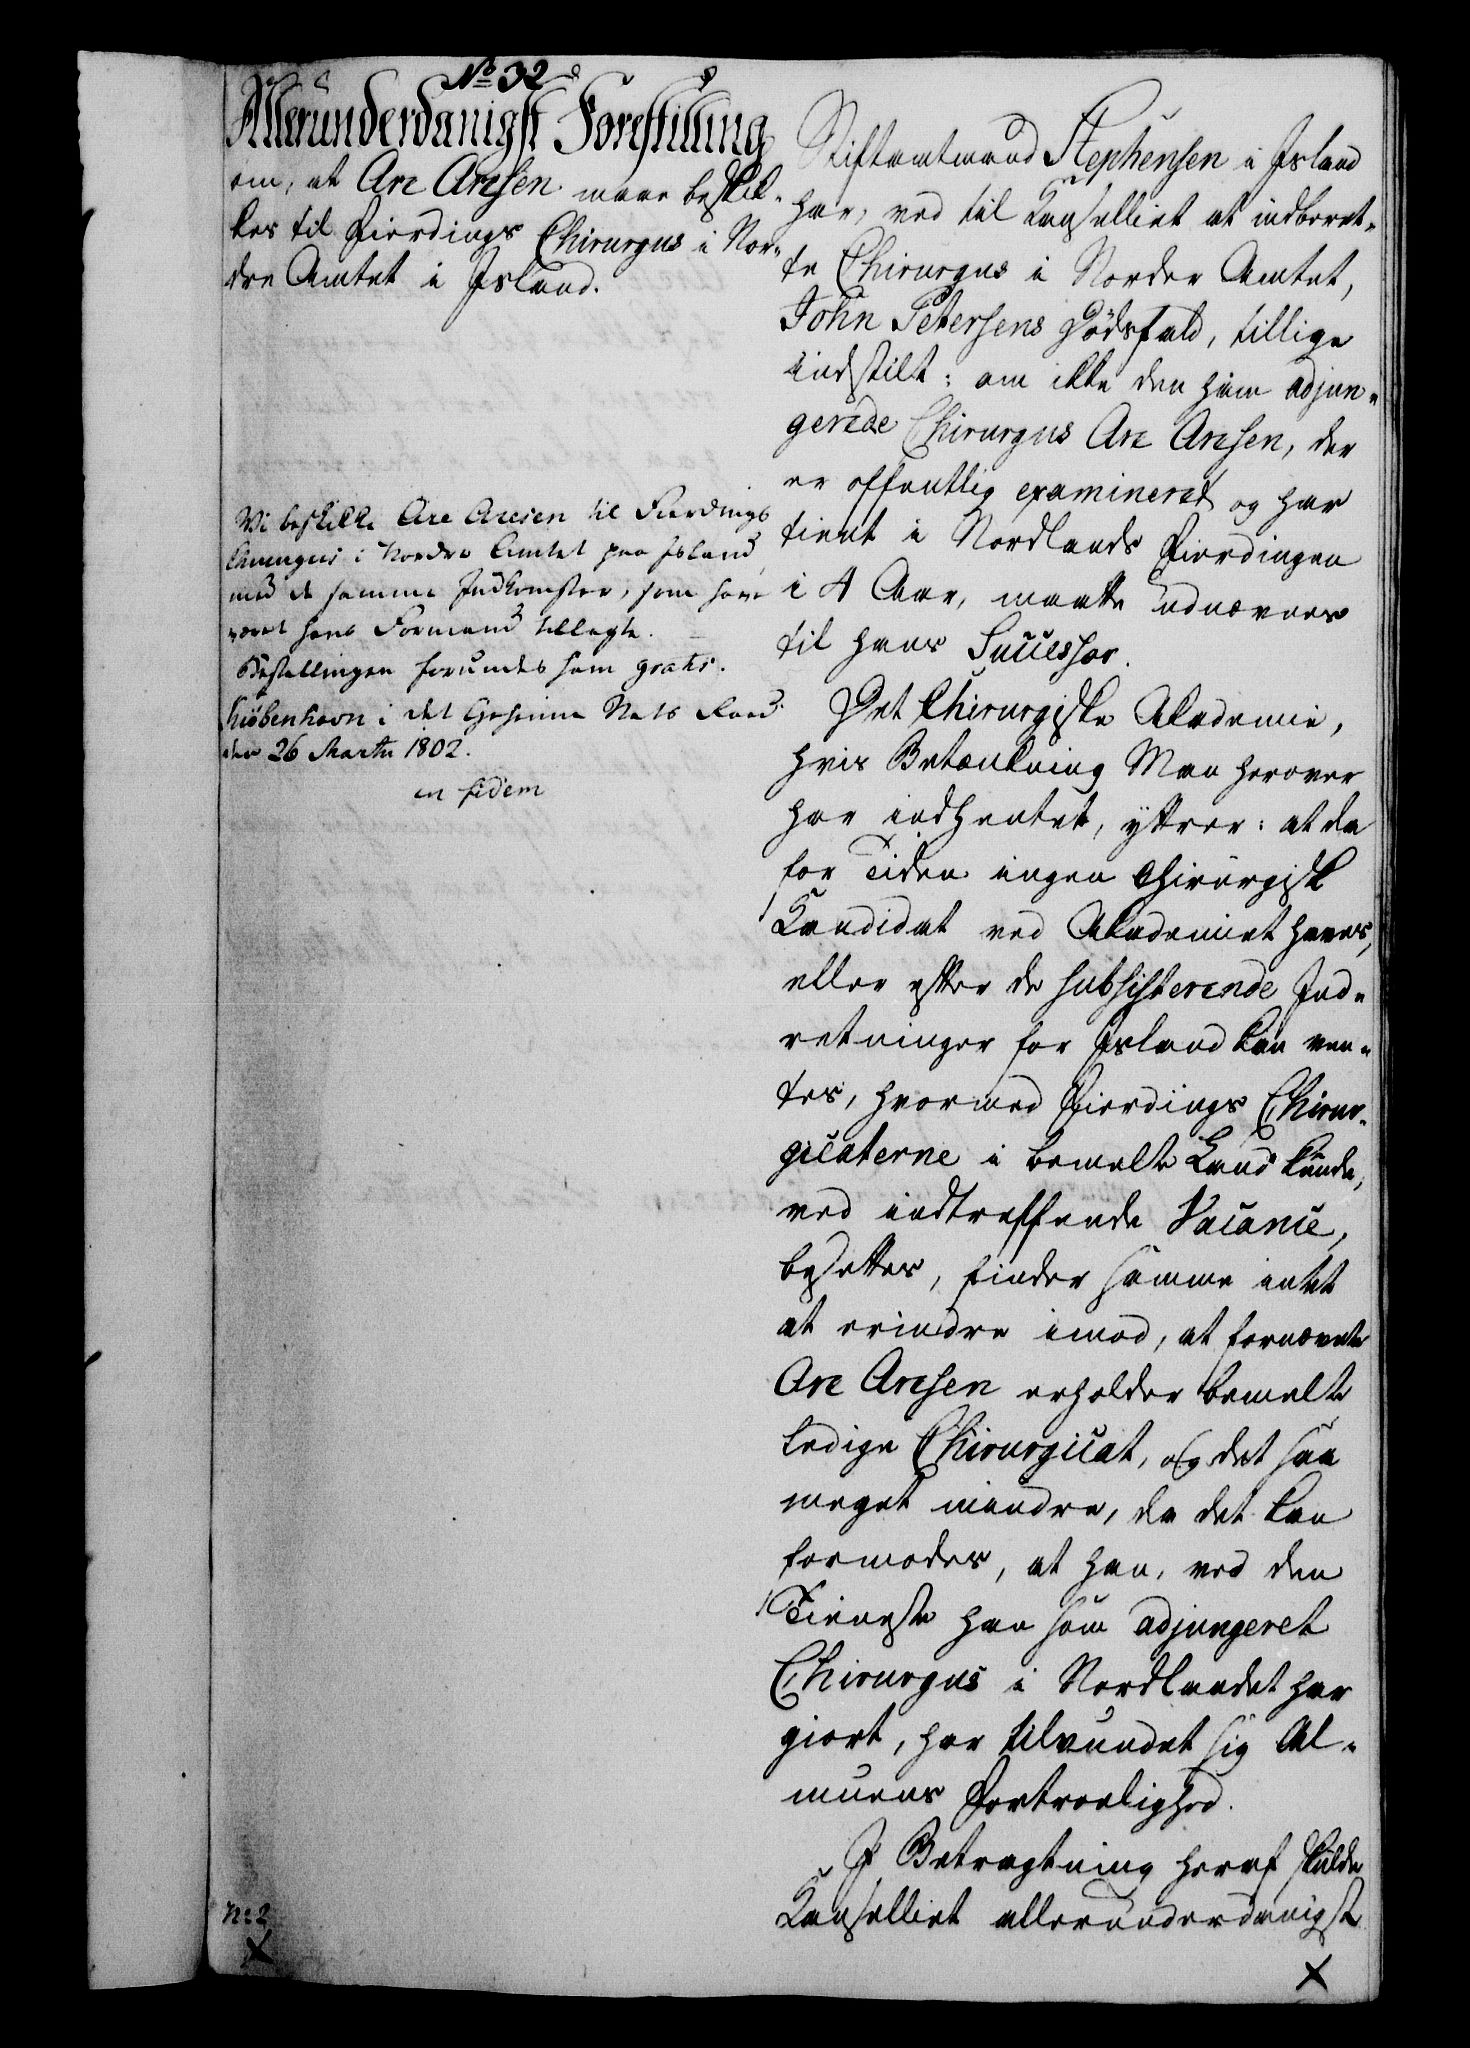 No 32
Allerunderdanigst Forestilling
om, at Are Aresen maae beskik-
kes til Fierdings Chirurgus i Nor-
dre Amtet i Island.
Vi beskikke Are Aresen til Fierdings
Chirurgus i Nordre Amtet paa Island,
med de samme Indkomster, som have
været hans Formand tillagte.
Bestallingen forundes ham gratis.
Kiøbenhavn i det Geheime Stats Raad
den 26 Martii 1802.
in fidem
No 2
Stiftamtmand Stephensen i Island
har, ved til Kanselliet at indberet-
te Chirurgus i Norder Amtet,
John Petersens Dödsfald, tillige
indstilt: om ikke den ham adjun-
gerede Chirurgus Are Aresen, der
er offentlig examineret og har
tient i Nordlands Fierdingen
i 4 Aar, maatte udnævnes
til hans Successor.
Det Chirurgiske Akademie,
hvis Betænkning Man herover
har indhentet, yttrer: at da
for Tiden ingen Chirurgisk
Kandidat ved Akademiet haves,
eller efter de subsisterende Ind-
retninger for Island kan ven-
tes, hvormed Fierdings Chirur-
gicaterne i bemelte Land kunde,
ved indtreffende Vacance,
besettes, finder samme intet
at erindre imod, at fornævnte
Are Aresen erholder bemelte
ledige Chirurgicat, og det saa
meget mindre, da det kan
formodes, at han, ved den
Tieneste han som adjungeret
Chirurgus i Nordlandet har
giort, har tilvundet sig Al-
muens Fortroelighed.
I Betragtning heraf skulde
Kanselliet allerunderdanigst